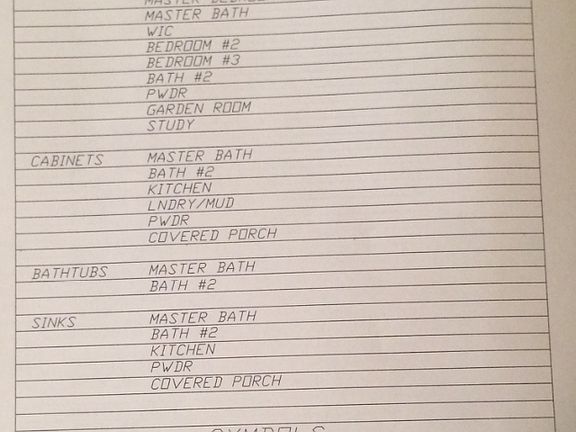 MASTER
MASTER BATH
WIC
BEDROOM #2
BEDROOM #3
BATH #2
PWDR
GARDEN ROOM
STUDY
CABINETS MASTER BATH
BATH #2
KITCHEN
LNDRY/MUD
PWDR
COVERED PORCH
BATHTUBS MASTER BATH
BATH #2
SINKS MASTER BATH
BATH #2
KITCHEN
PWDR
COVERED PORCH
SYMBOLS